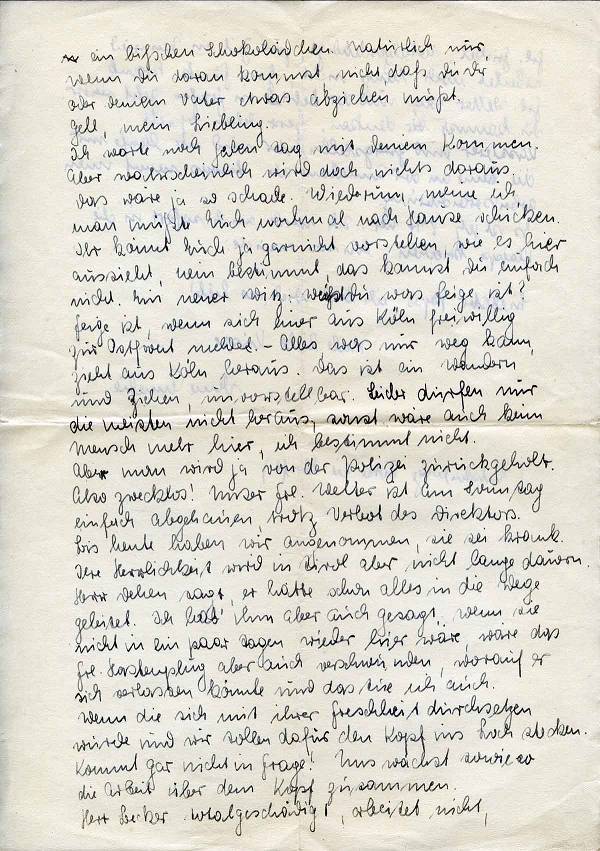 ein bißchen Schokolädchen. Natürlich nur,
wenn Du daran kommst nicht, daß Du Dir
oder Deinem Vater etwas abziehen müßt.
Gell, mein Liebling.
Ich warte noch jeden Tag mit Deinem Kommen.
Aber wahrscheinlich wird doch nichts daraus.
Das wäre ja so schade. Wiederum, meine ich,
man müßte Euch nochmal nach Hause schicken.
Ihr könnt Euch ja garnicht vorstellen, wie es hier
aussieht, nein bestimmt, das kannst Du einfach
nicht. Ein neuer Witz: weißt Du was feige ist?
Feige ist, wenn sich hier aus Köln freiwillig
zur Ostfront meldet. – Alles was nur weg kann,
zieht aus Köln heraus. Das ist ein Wandern
und Ziehen, unvorstellbar. Leider dürfen nur
die meisten nicht heraus, sonst wäre auch kein
Mensch mehr hier, ich bestimmt nicht.
Aber man wird ja von der Polizei zurückgeholt.
Also zwecklos! Unser Frl. Welter ist am Sonntag
einfach abgehauen, trotz Verbot des Direktors.
Bis heute haben wir angenommen, sie sei krank.
Ihre Herrlichkeit wird in Tirol aber nicht lange dauern.
Herr Dehen sagt, er hätte schon alles in die Wege
geleitet. Ich hab' ihm aber auch gesagt, wenn sie
nicht in ein paar Tagen wieder hier wäre, wäre das
Frl. aber auch verschwunden, worauf er
sich verlassen könnte und das tue ich auch.
Wenn die sich mit ihrer Frechheit durchsetzen
würde und wir sollen dafür den Kopf ins Loch stecken.
Kommt gar nicht in Frage! Uns wächst sowieso
die Arbeit über dem Kopf zusammen.
Herr Becker totalgeschädigt, arbeitet nicht,